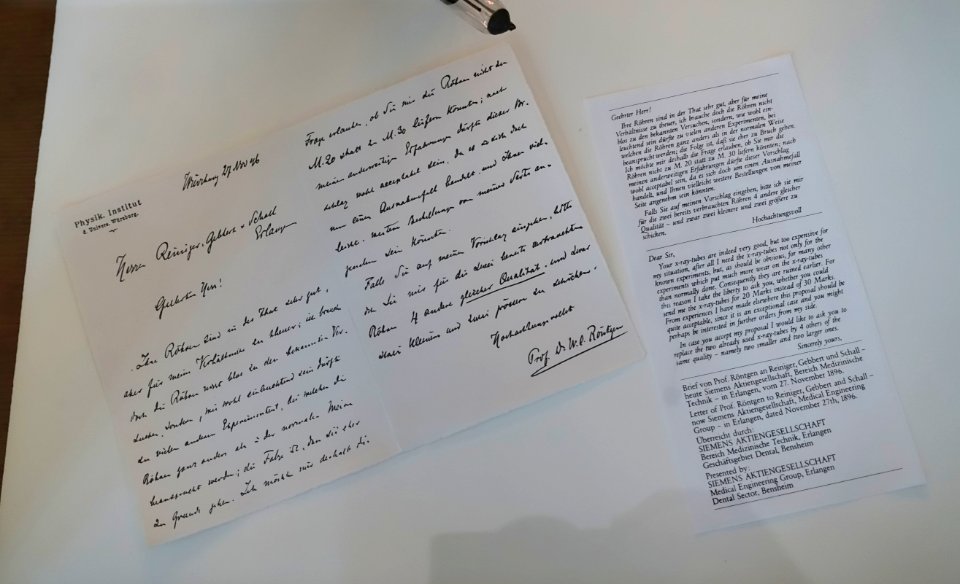 Physik. Institut
d. Univers. Würzburg.
Würzburg 27 Nov 96
Herrn Reiniger, Gebbert & Schall
Erlangen
Geehrter Herr!
Ihre Röhren sind in der That sehr gut,
aber für meine Verhältnisse zu theuer; ich brauche
doch die Röhren nicht blos zu den bekannten Ver-
suchen, sondern, wie wohl einleuchtend sein dürfte
zu vielen anderen Experimenten, bei welchen die
Röhren ganz anders als in der normalen Weise
beansprucht werden; die Folge ist, dass sie eher
zu Grunde gehen. Ich möchte mir deshalb die
Frage erlauben, ob Sie mir die Röhren nicht zu
M. 20 statt zu M. 30 liefern könnten; nach
meinen anderweitigen Erfahrungen dürfte dieser Vor-
schlag wohl acceptabel sein, da es sich doch
um einen Ausnahmefall handelt und Ihnen viel-
leicht weitere Bestellungen von meiner Seite an-
genehm sein könnten.
Falls Sie auf meinen Vorschlag eingehen, bitte
ich Sie mir für die zwei bereits verbrauchten
Röhren 4 andere gleicher Qualität - und zwar
zwei kleinere und zwei grössere zu schicken.
Hochachtungsvoll
Prof. Dr. W. C. Röntgen
Geehrter Herr!
Ihre Röhren sind in der That sehr gut, aber für meine
Verhältnisse zu theuer, ich brauche doch die Röhren nicht
blos zu den bekannten Versuchen, sondern, wie wohl ein-
leuchtend sein dürfte zu vielen anderen Experimenten, bei
welchen die Röhren ganz anders als in der normalen Weise
beansprucht werden; die Folge ist, daß sie eher zu Bruch gehen.
Ich möchte mir deshalb die Frage erlauben, ob Sie mir die
Röhren nicht zu M. 20 statt zu M. 30 liefern könnten; nach
meinen anderweitigen Erfahrungen dürfte dieser Vorschlag
wohl acceptabel sein, da es sich doch um einen Ausnahmefall
handelt, und Ihnen vielleicht weitere Bestellungen von meiner
Seite angenehm sein könnten.
Falls Sie auf meinen Vorschlag eingehen, bitte ich sie mir
für die zwei bereits verbrauchten Röhren 4 andere gleicher
Qualität – und zwar zwei kleinere und zwei größere zu
schicken.
Hochachtungsvoll
Dear Sir,
Your x-ray-tubes are indeed very good, but too expensive for
my situation, after all I need the x-ray-tubes not only for the
known experiments, but, as should be obvious, for many other
experiments which put much more wear on the x-ray-tubes
than normally done. Consequently they are ruined earlier. For
this reason I take the liberty to ask you, whether you could
send me the x-ray-tubes for 20 Marks instead of 30 Marks.
From experiences I have made elsewhere this proposal should be
quite acceptable, since it is an exceptional case and you might
perhaps be interested in further orders from my side.
In case you accept my proposal I would like to ask you to
replace the two already used x-ray-tubes by 4 others of the
same quality – namely two smaller and two larger ones.
Sincerely yours,
Brief von Prof. Röntgen an Reiniger, Gebbert und Schall –
heute Siemens Aktiengesellschaft, Bereich Medizinische
Technik – in Erlangen, vom 27. November 1896.
Letter of Prof. Röntgen to Reiniger, Gebbert and Schall –
now Siemens Aktiengesellschaft, Medical Engineering
Group – in Erlangen, dated November 27th, 1896.
Überreicht durch:
SIEMENS AKTIENGESELLSCHAFT
Bereich Medizinische Technik, Erlangen
Geschäftsgebiet Dental, Bensheim
Presented by:
SIEMENS AKTIENGESELLSCHAFT
Medical Engineering Group, Erlangen
Dental Sector, Bensheim